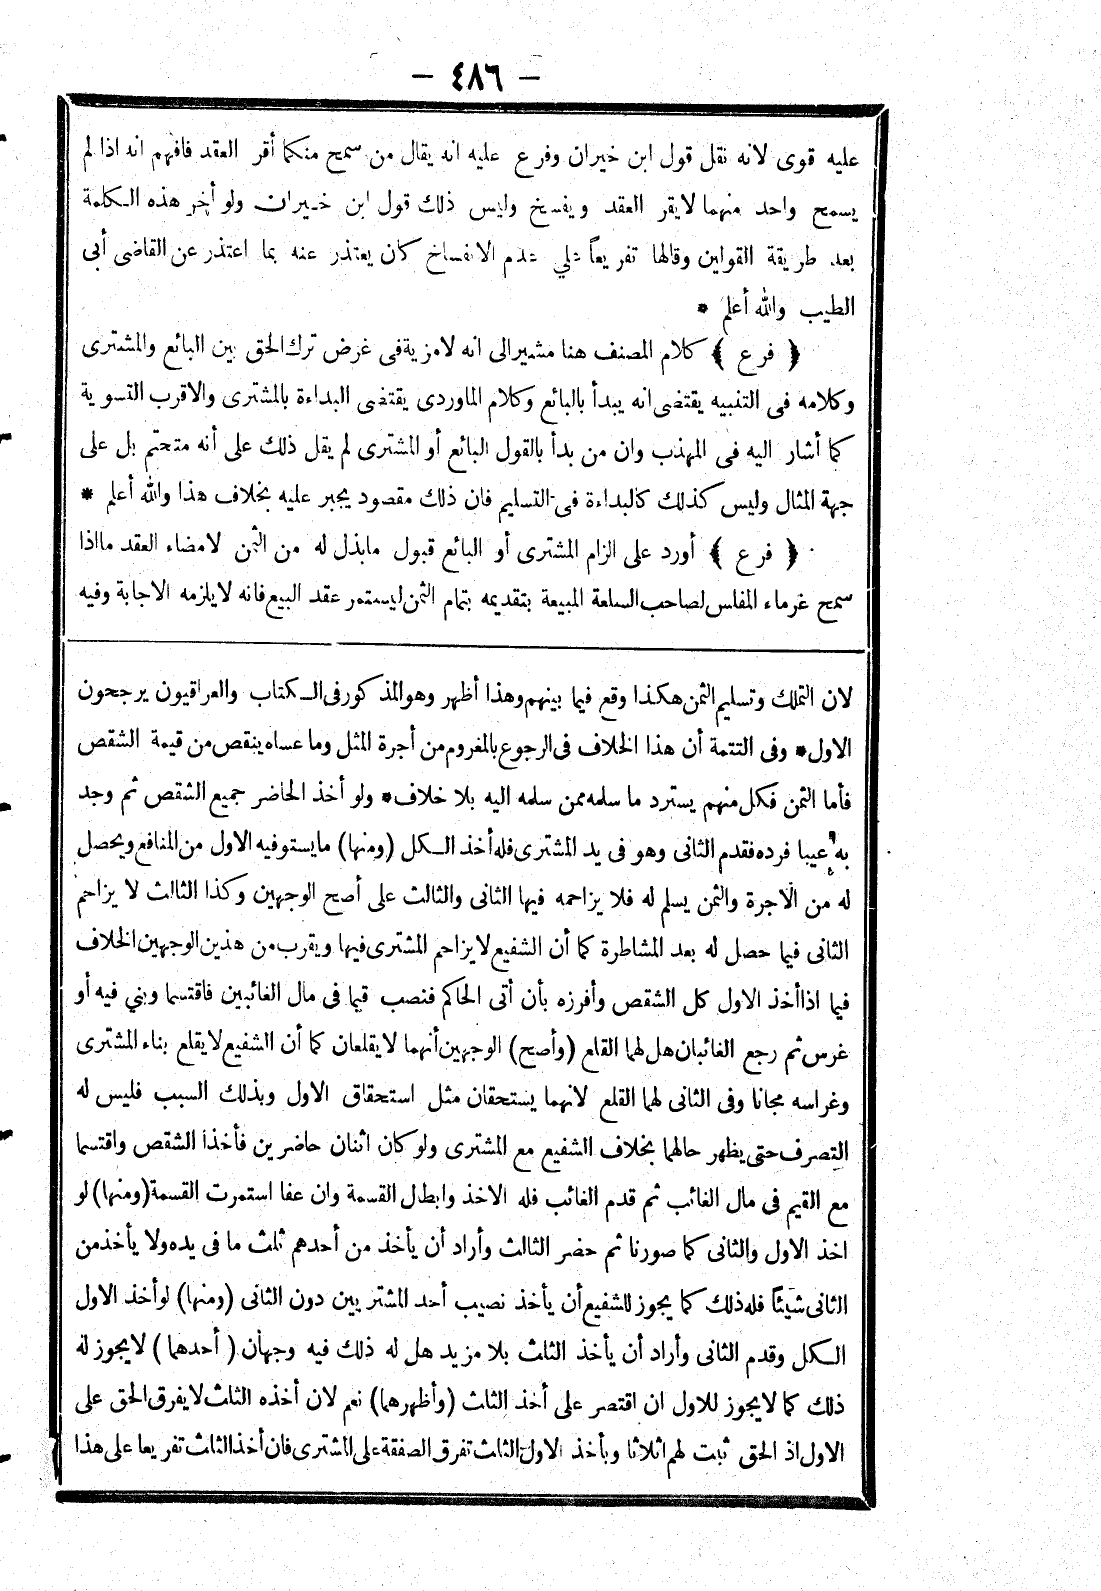 — ٤٨٦ —
عليه قوى لانه نقل قول ابن خيران وفرع عليه انه يقال من سمح منكما أقر العقد فافهم انه اذا لم
يسمح واحد منهما لايقر العقد ويفسخ وليس ذلك قول ابن خيران ولو أخر هذه الكلمة
بعد طريقة القولين وقالها تفريعاً على عدم الانفساخ كان يعتذر عنه بما اعتذر عن القاضى أبى
الطيب والله أعلم *
﴿ فرع ﴾ كلام المصنف هنا مشير الى انه لامزية فى عرض ترك الحق بين البائع والمشترى
وكلامه فى التنبيه يقتضى انه يبدأ بالبائع وكلام الماوردى يقتضى البداءة بالمشترى والاقرب التسوية
كما أشار اليه فى المهذب وان من بدأ بالقول البائع أو المشترى لم يقل ذلك على أنه متحتم بل على
جهة المثال وليس كذلك كالبداءة فى التسليم فان ذلك مقصود يجبر عليه بخلاف هذا والله أعلم *
﴿ فرع ﴾ أورد على الزام المشترى أو البائع قبول مابذل له من الثمن لامضاء العقد مااذا
سمح غرماء المفلس لصاحب السلعة المبيعة بتقديمه بتمام الثمن ليستمر عقد البيع فانه لايلزمه الاجابة وفيه
لان التملك وتسليم الثمن هكذا وقع فيما بينهم وهذا أظهر وهو المذكور فى الكتاب والعراقيون يرجحون
الاول * وفى التتمة أن هذا الخلاف فى الرجوع بالمغروم من أجرة المثل وما عساه ينقص من قيمة الشقص
فأما الثمن فكل منهم يسترد ما سلمه ممن سلمه اليه بلا خلاف * ولو أخذ الحاضر جميع الشقص ثم وجد
به عيبا فرده فقدم الثانى وهو فى يد المشترى فله أخذ الكل (ومنها) مايستوفيه الاول من المنافع ويحصل
له من الاجرة والثمن يسلم له فلا يزاحمه فيها الثانى والثالث على أصح الوجهين وكذا الثالث لا يزاحم
الثانى فيما حصل له بعد المشاطرة كما أن الشفيع لايزاحم المشترى فيها ويقرب من هذين الوجهين الخلاف
فيما اذا أخذ الاول كل الشقص وأفرزه بأن أتى الحاكم فنصب قيما فى مال الغائبين فاقتسما وبني فيه أو
غرس ثم رجع الغائبان هل لهما القلع (وأصح) الوجهين أنهما لايقلعان كما أن الشفيع لايقلع بناء المشترى
وغراسه مجانا وفى الثانى لهما القلع لانهما يستحقان مثل استحقاق الاول وبذلك السبب فليس له
التصرف حتى يظهر حالهما بخلاف الشفيع مع المشترى ولو كان اثنان حاضرين فأخذا الشقص واقتسما
مع القيم فى مال الغائب ثم قدم الغائب فله الاخذ وابطال القسمة وان عفا استمرت القسمة (ومنها) لو
اخذ الاول والثانى كما صورنا ثم حضر الثالث وأراد أن يأخذ من أحدهم ثلث ما فى يده ولا يأخذ من
الثانى شيئاً فله ذلك كما يجوز للشفيع أن يأخذ نصيب أحد المشتريين دون الثانى (ومنها) لو أخذ الاول
الكل وقدم الثانى وأراد أن يأخذ الثلث بلا مزيد هل له ذلك فيه وجهان (أحدهما) لايجوز له
ذلك كما لايجوز للاول ان اقتصر على أخذ الثلث (وأظهرهما) نعم لان أخذه الثلث لايفرق الحق على
الاول اذ الحق ثبت لهم اثلاثا وبأخذ الاول الثلث تفرق الصفقة على المشترى فان أخذ الثلث تفريعا على هذا